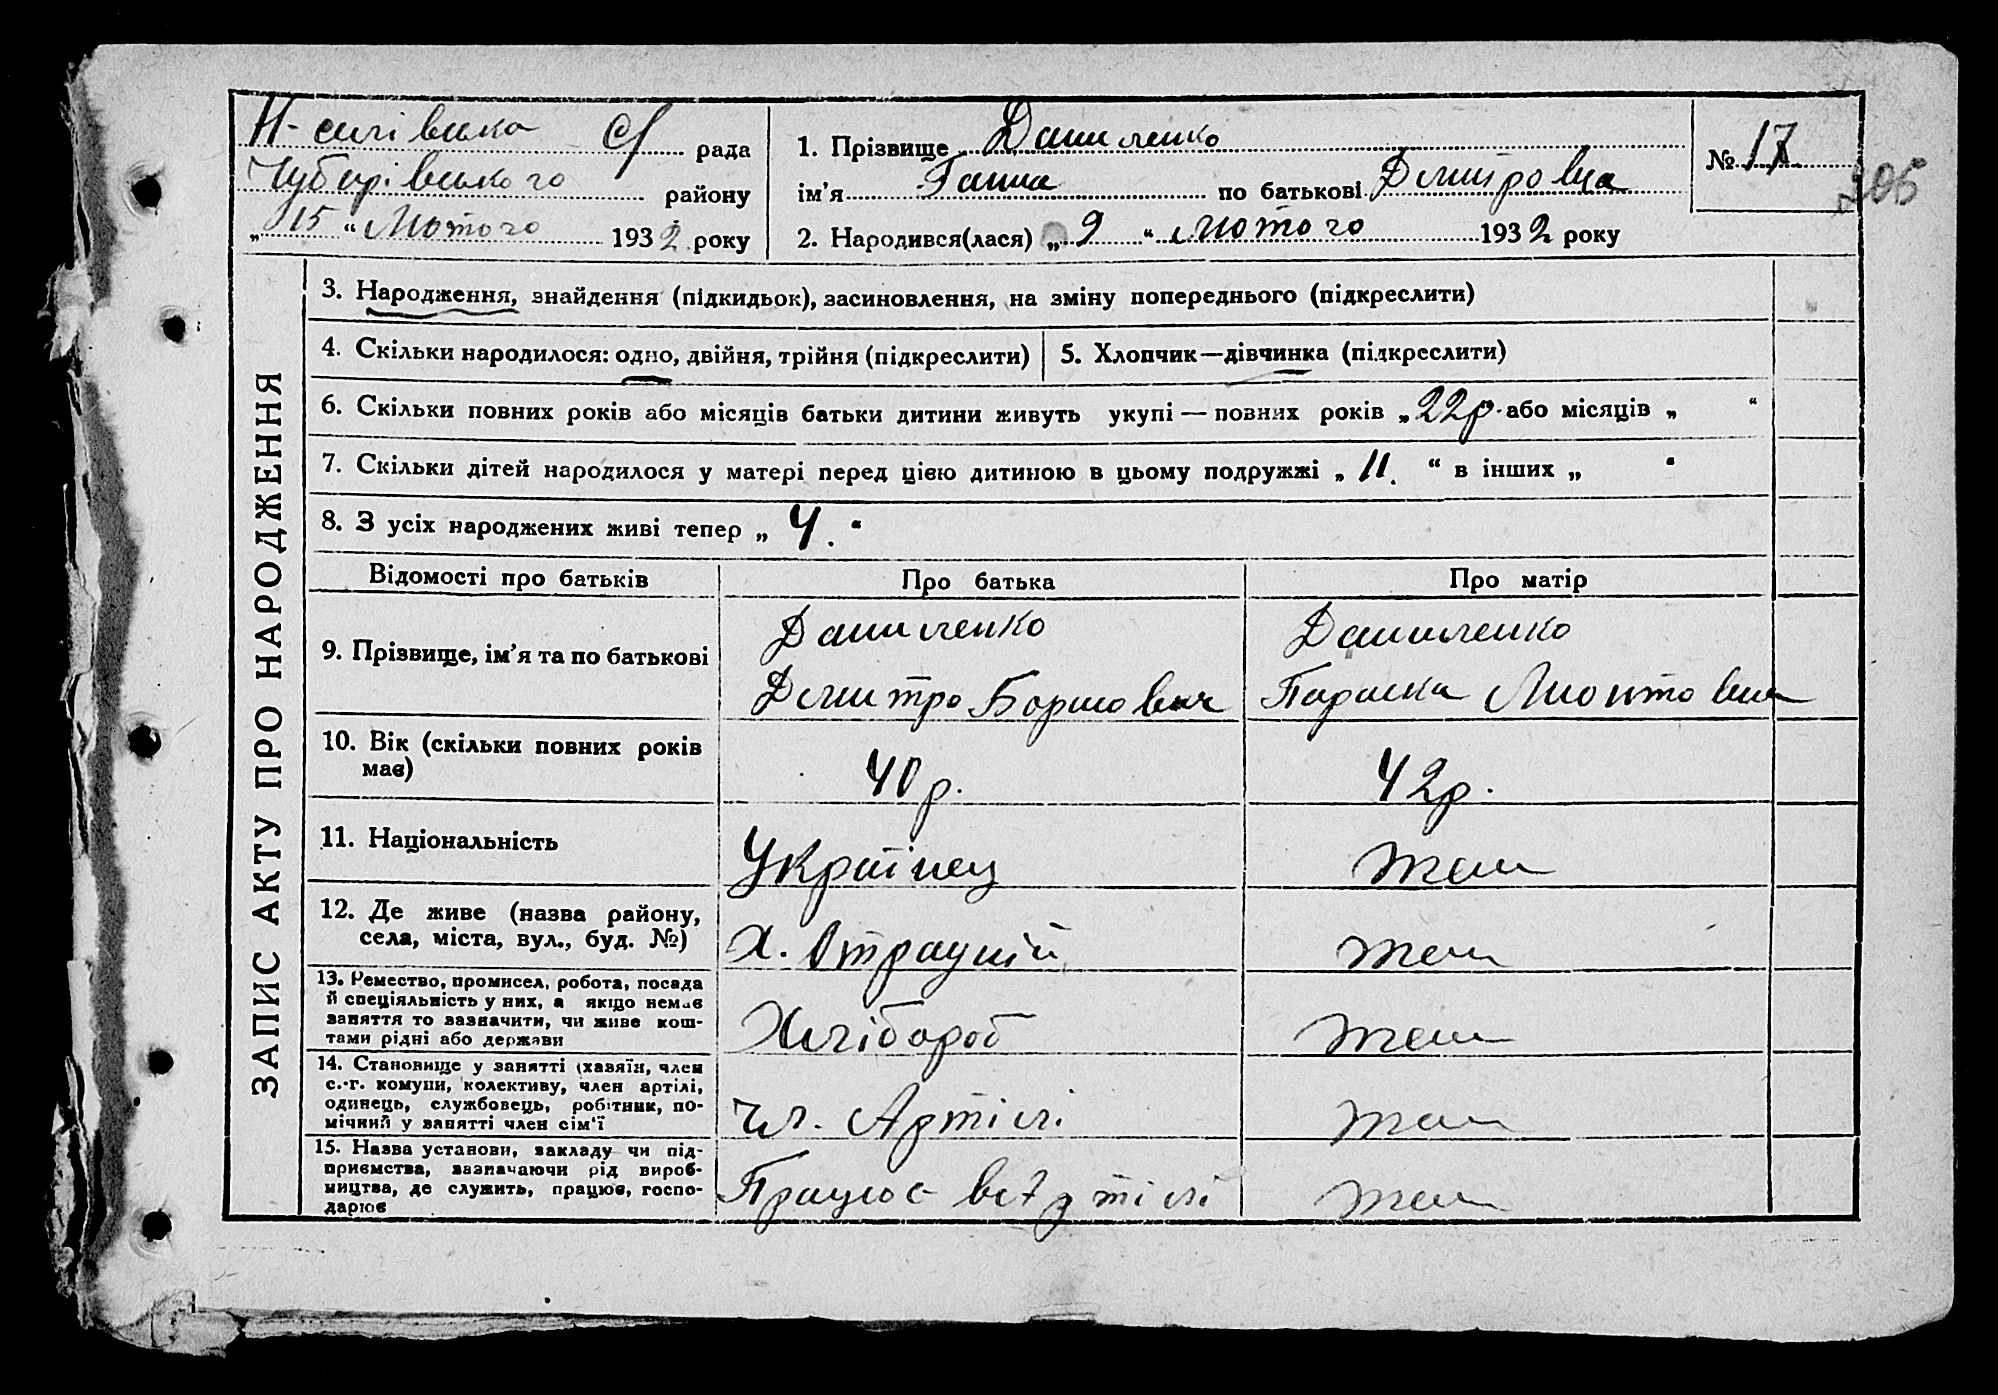 Н-силівська С/ рада
Чубарівського району
„ 15 “ Лютого 1932 року
1. Прізвище Даниленко
ім’я Ганна по батькові Дмитровна
2. Народився(лася) „ 9 “ лютого 1932 року
№ 17
306
ЗАПИС АКТУ ПРО НАРОДЖЕННЯ
3. Народження, знайдення (підкидьок), засиновлення, на зміну попереднього (підкреслити)
4. Скільки народилося: одно, двійня, трійня (підкреслити)
5. Хлопчик—дівчинка (підкреслити)
6. Скільки повних років або місяців батьки дитини живуть укупі — повних років „ 22р. або місяців „ “
7. Скільки дітей народилося у матері перед цією дитиною в цьому подружжі „ 11. “ в інших „ “
8. З усіх народжених живі тепер „ 4. “
Відомості про батьків
Про батька
Про матір
9. Прізвище, ім’я та по батькові
Даниленко
Дмитро
Даниленко
Параска
10. Вік (скільки повних років
має)
40 р.
42р.
11. Національність
Українец
теж
12. Де живе (назва району,
села, міста, вул., буд. №)
х.
теж
13. Ремество, промисел, робота, посада
й спеціяльність у них, а якщо немає
заняття то зазначити, чи живе кош-
тами рідні або держави
Хлібороб
теж
14. Становище у занятті (хазяїн, член
с.-г. комуни, колективу, член артілі,
одинець, службовець, робітник, по-
мічний у занятті член сім’ї
чл. Артілі
теж
15. Назва установи, закладу чи під-
приємства, зазначаючи рід вироб-
ництва, де служить, працює, госпо-
дарює
Працює в с/г артілі
теж